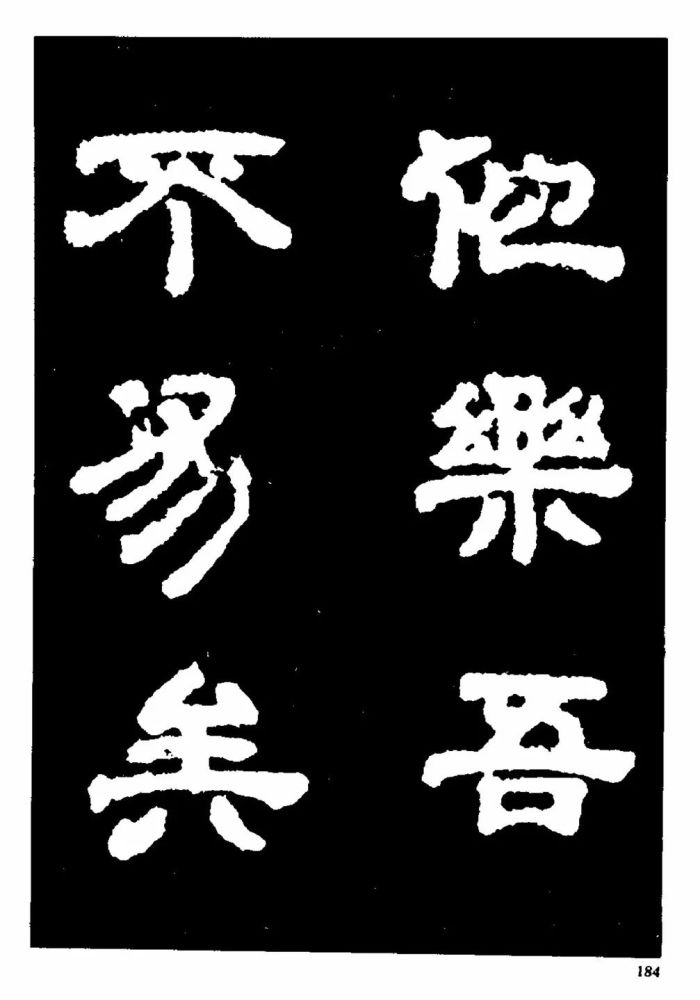 他樂吾
不易矣
184